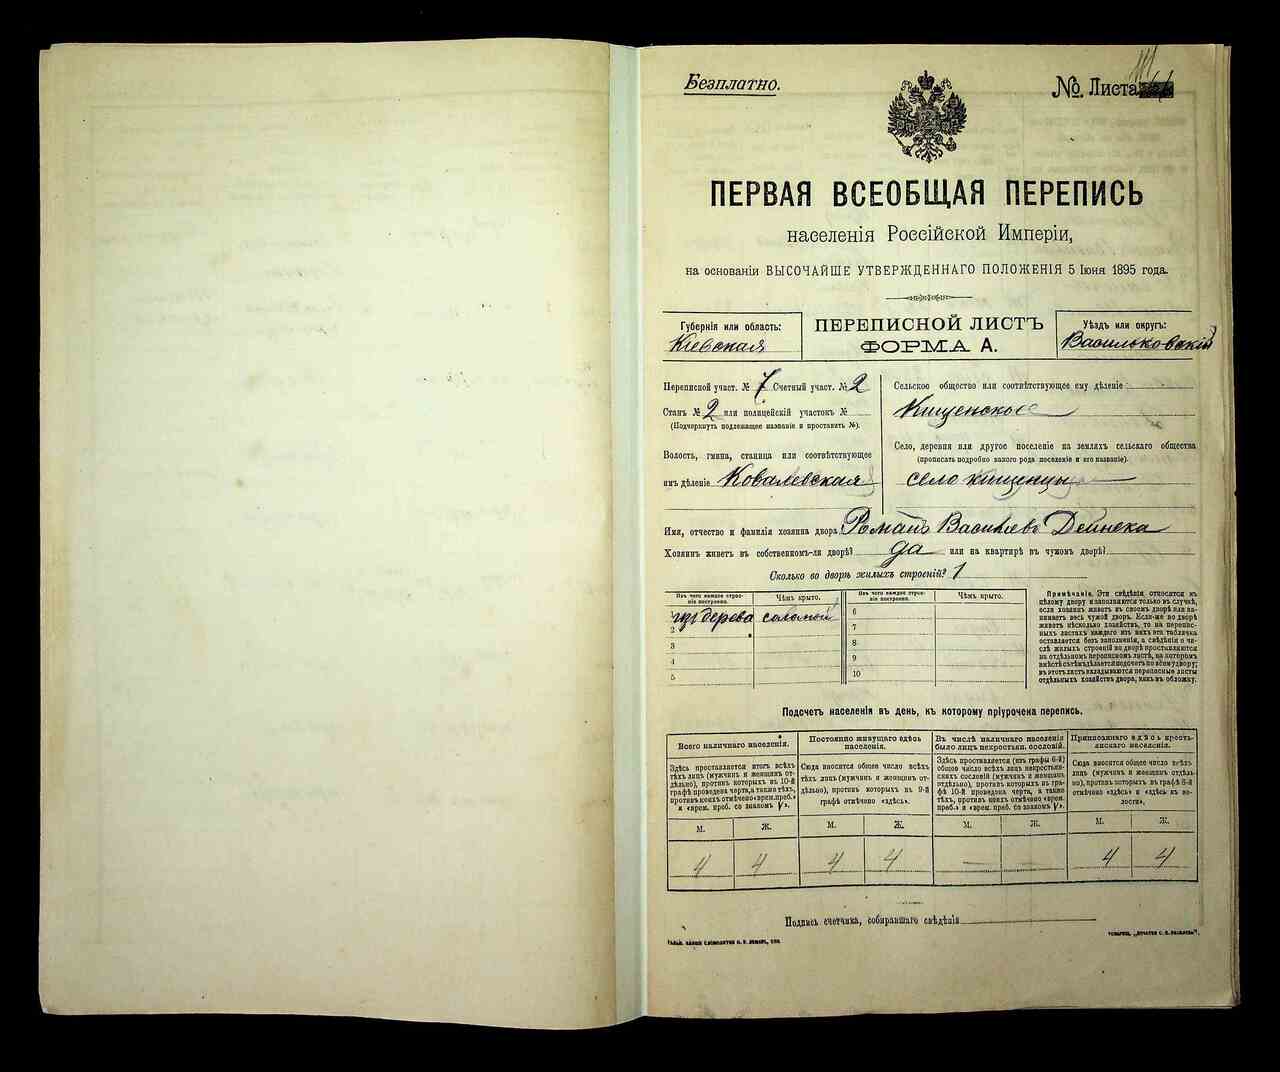 Безплатно.
№ Листа
ПЕРВАЯ ВСЕОБЩАЯ ПЕРЕПИСЬ
населенія Россійской Имперіи,
на основаніи ВЫСОЧАЙШЕ УТВЕРЖДЕННАГО ПОЛОЖЕНІЯ 5 Іюня 1895 года.
Губернія или область:
Кіевская
ПЕРЕПИСНОЙ ЛИСТЪ
ФОРМА А.
Уѣздъ или округъ:
Васильковскій
Переписной участ. № 7 Счетный участ. № 2
Станъ № 2 или полицейскій участокъ №
(Подчеркнуть подлежащее названіе и проставить №).
Волость, гмина, станица или соотвѣтствующее
имъ дѣленіе Ковалевская
Сельское общество или соотвѣтствующее ему дѣленіе:
Кищенское
Село, деревня или другое поселеніе на земляхъ сельскаго общества
(прописать подробно какого рода поселеніе и его названіе).
село Кищенцы
Имя, отчество и фамилія хозяина двора Романъ Васильевъ Дейнека
Хозяинъ живетъ въ собственномъ-ли дворѣ? да или на квартирѣ въ чужомъ дворѣ?
Сколько во дворѣ жилыхъ строеній? 1
Изъ чего каждое строеніе построено.
Чѣмъ крыто.
1 изъ дерева соломой
2
3
4
5
Изъ чего каждое строеніе построено.
Чѣмъ крыто.
6
7
8
9
10
Примѣчаніе. Эти свѣдѣнія относятся къ
цѣлому двору и заполняются только въ случаѣ,
если хозяинъ живетъ въ своемъ дворѣ или занимаетъ
весь чужой дворъ. Если-же во дворѣ
живетъ нѣсколько хозяйствъ, то на переписныхъ
листахъ каждаго изъ нихъ эта табличка
оставляется безъ заполненія, а свѣдѣнія о числѣ
жилыхъ строеній во дворѣ проставляются
на отдѣльномъ переписномъ листѣ, на которомъ
вмѣстѣ съ тѣмъ дѣлается подсчетъ по всему двору;
въ этотъ листъ вкладываются переписные листы
отдѣльныхъ хозяйствъ двора, какъ въ обложку.
Подсчетъ населенія въ день, къ которому пріурочена перепись.
Всего наличнаго населенія.
Постоянно живущаго здѣсь населенія.
Въ числѣ наличнаго населенія было лицъ некрестьян. сословій.
Приписаннаго здѣсь крестьянскаго населенія.
Здѣсь проставляется итогъ всѣхъ тѣхъ лицъ (мужчинъ и женщинъ отдѣльно), противъ которыхъ въ 10-й графѣ проведена черта, а также тѣхъ, противъ коихъ отмѣчено «врем. преб.» и «врем. преб. со знакомъ V».
Сюда вносится общее число всѣхъ тѣхъ лицъ (мужчинъ и женщинъ отдѣльно), противъ которыхъ въ 9-й графѣ отмѣчено «здѣсь».
Здѣсь проставляется (изъ графы 6-й) общее число всѣхъ лицъ некрестьянскихъ сословій (мужчинъ и женщинъ отдѣльно), противъ которыхъ въ графѣ 10-й проведена черта, а также тѣхъ, противъ коихъ отмѣчено «врем. преб.» и «врем. преб. со знакомъ V».
Сюда вносится общее число всѣхъ лицъ (мужчинъ и женщинъ отдѣльно), противъ которыхъ въ графѣ 8-й отмѣчено «здѣсь» и «здѣсь въ волости».
М. Ж. М. Ж. М. Ж. М. Ж.
4 4 4 4 — — 4 4
Подпись счетчика, собиравшаго свѣдѣнія